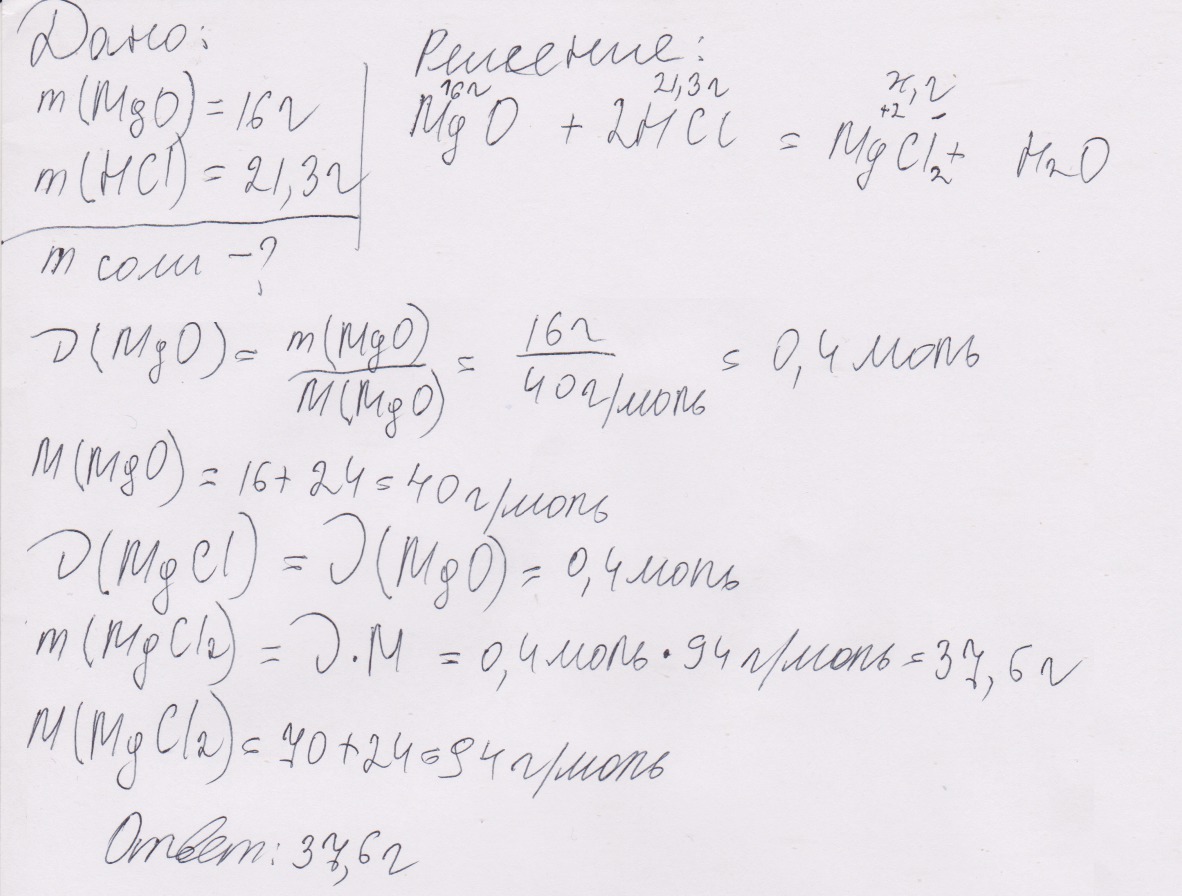 Дано:
m(MgO) = 16г
m(HCl) = 21,3г
m соли -?
Решение:
16г 21,3г x, г
+2 -
MgO + 2HCl = MgCl₂ + H₂O
ν(MgO) = m(MgO) / M(MgO) = 16г / 40г/моль = 0,4 моль
M(MgO) = 16 + 24 = 40 г/моль
ν(MgCl) = ν(MgO) = 0,4 моль
m(MgCl₂) = ν·M = 0,4 моль · 94 г/моль = 37,6 г
M(MgCl₂) = 70 + 24 = 94 г/моль
Ответ: 37,6 г